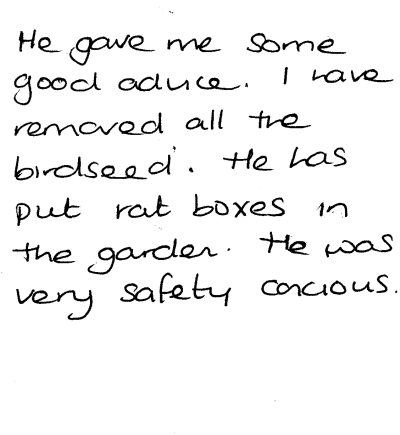 He gave me some
good advice. I have
removed all the
birdseed. He has
put rat boxes in
the garden. He was
very safety concious.